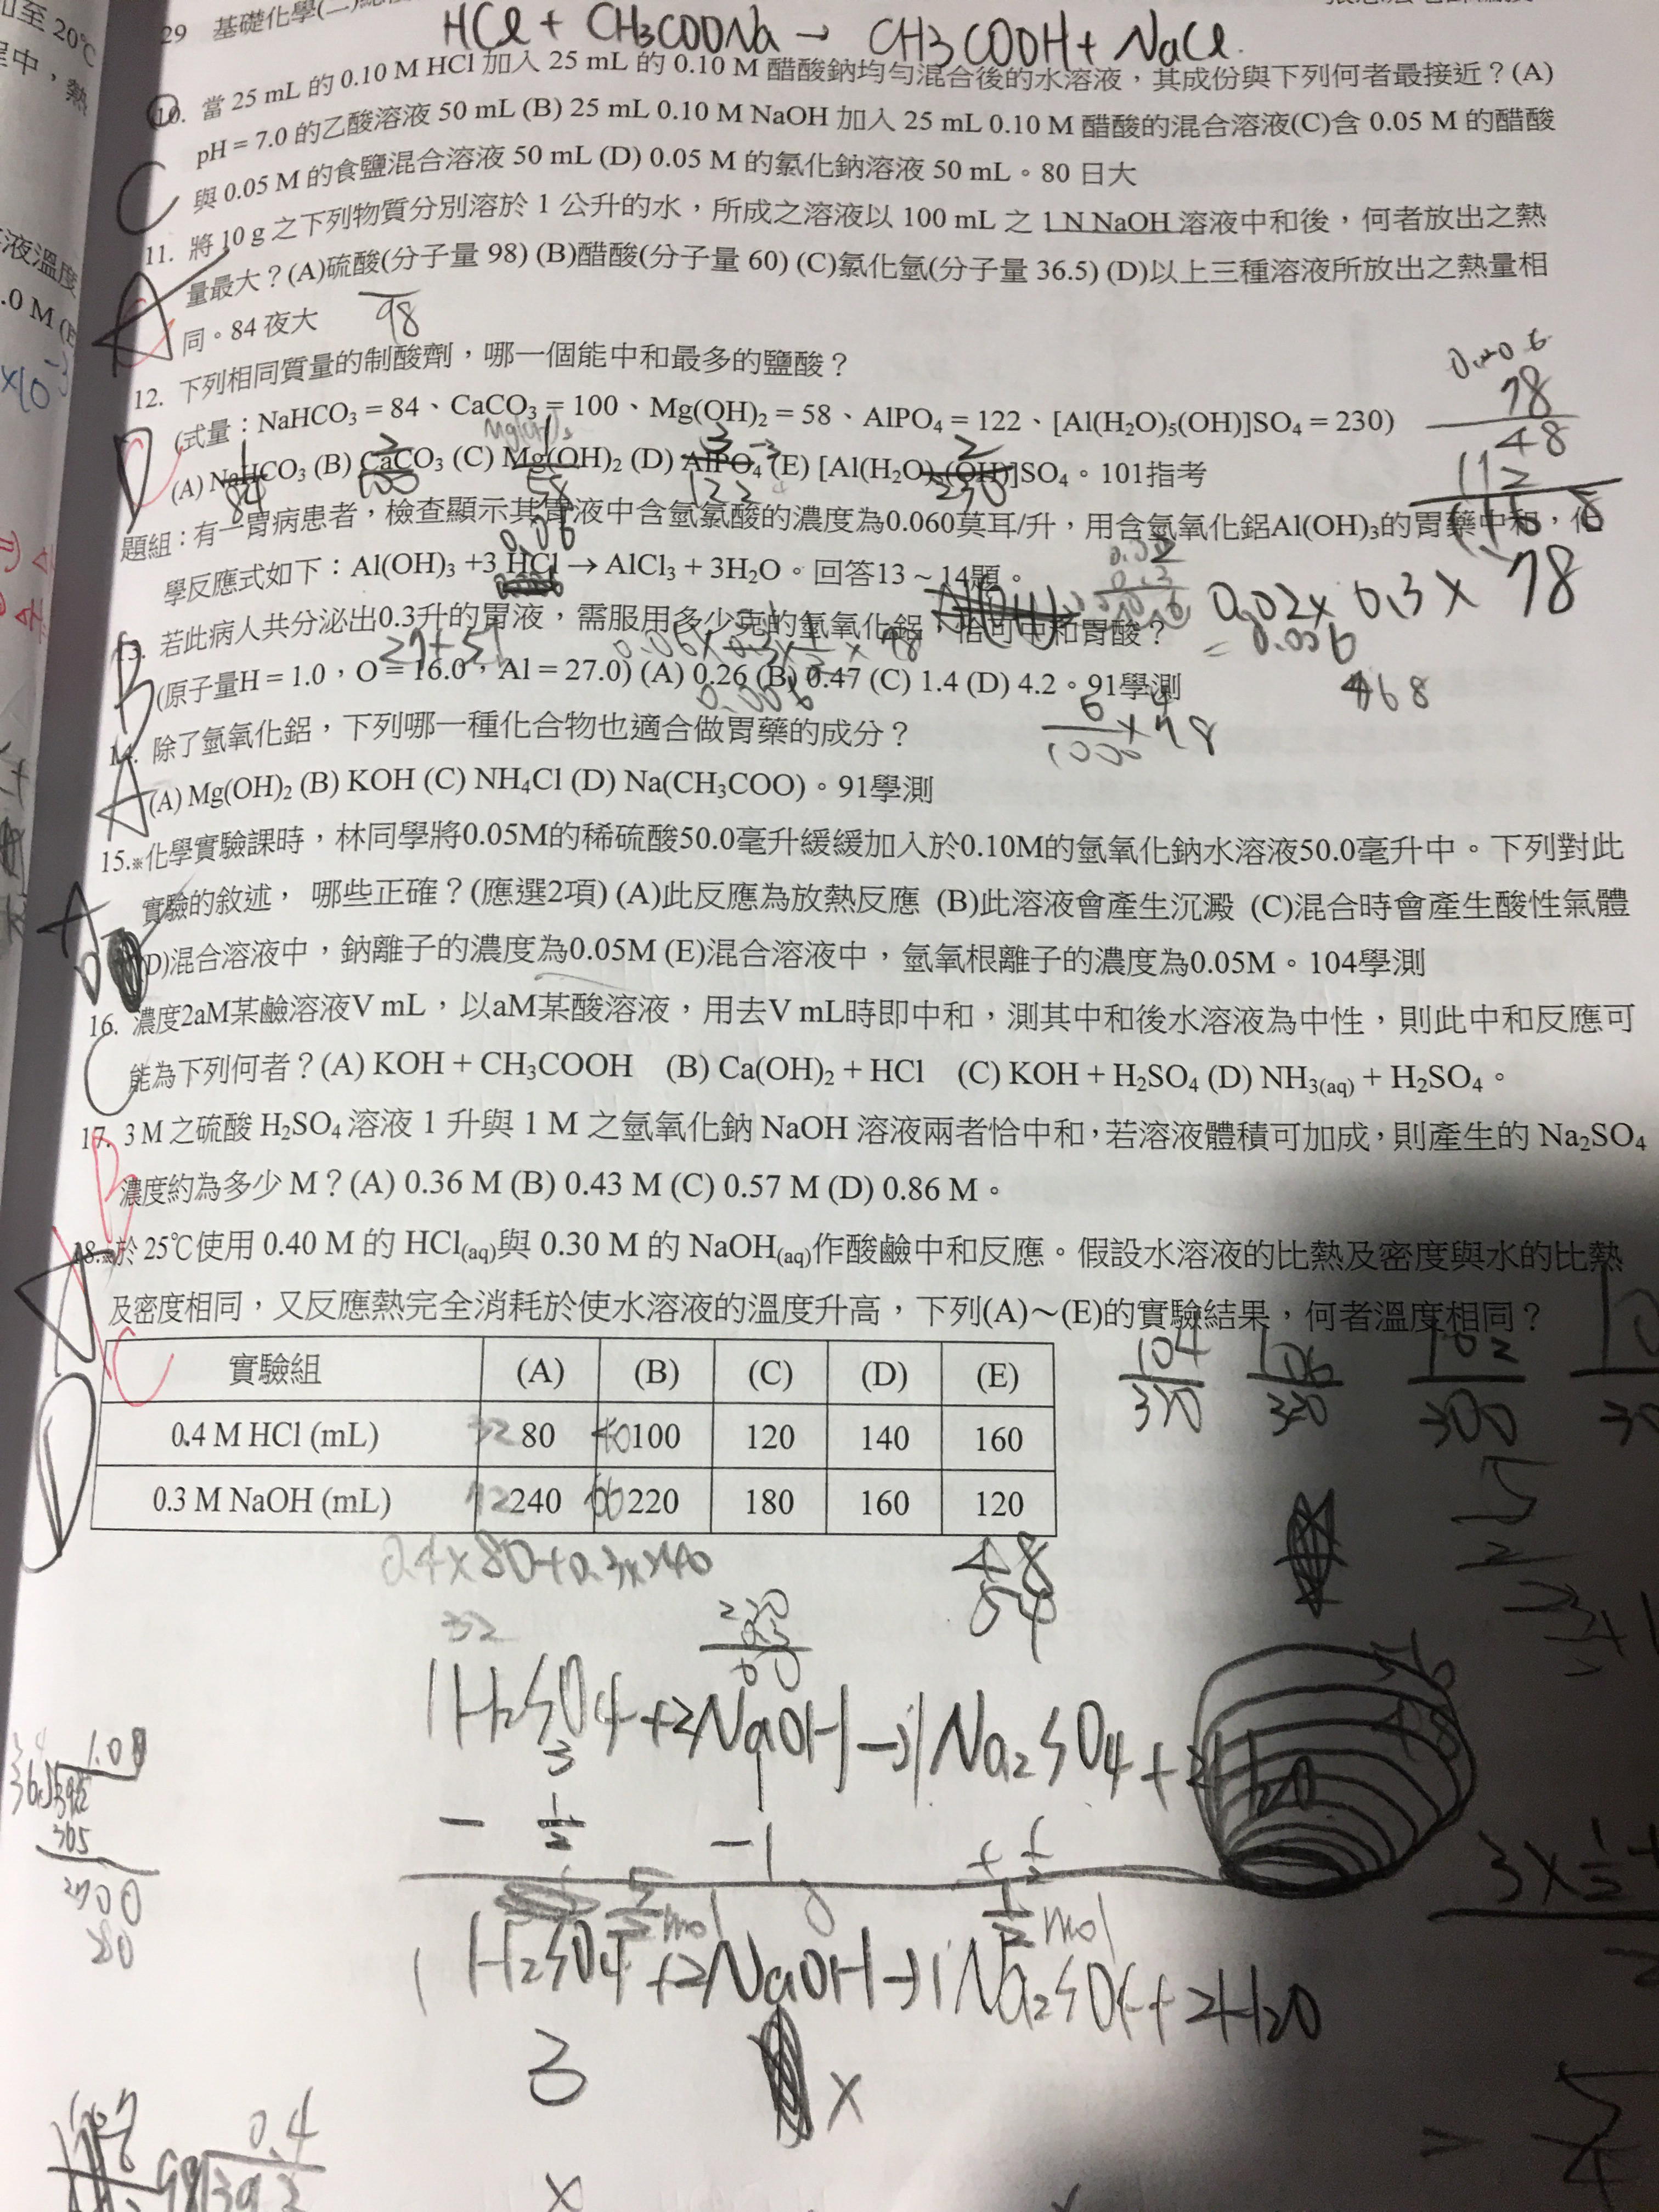 29 基礎化學(二)
HCl + CH3COONa → CH3COOH + NaCl
10. 當 25 mL 的 0.10 M HCl 加入 25 mL 的 0.10 M 醋酸鈉均勻混合後的水溶液，其成份與下列何者最接近？(A)
pH = 7.0 的乙酸溶液 50 mL (B) 25 mL 0.10 M NaOH 加入 25 mL 0.10 M 醋酸的混合溶液(C)含 0.05 M 的醋酸
C 與 0.05 M 的食鹽混合溶液 50 mL (D) 0.05 M 的氯化鈉溶液 50 mL。80 日大
11. 將 10 g 之下列物質分別溶於 1 公升的水，所成之溶液以 100 mL 之 1 N NaOH 溶液中和後，何者放出之熱
量最大？(A)硫酸(分子量 98) (B)醋酸(分子量 60) (C)氯化氫(分子量 36.5) (D)以上三種溶液所放出之熱量相
同。84 夜大
98
12. 下列相同質量的制酸劑，哪一個能中和最多的鹽酸？
(式量：NaHCO₃ = 84、CaCO₃ = 100、Mg(OH)₂ = 58、AlPO₄ = 122、[Al(H₂O)₅(OH)]SO₄ = 230)
(A) NaHCO₃ (B) CaCO₃ (C) Mg(OH)₂ (D) AlPO₄ (E) [Al(H₂O)₅(OH)]SO₄。101指考
84 100 58 122 230
題組：有一胃病患者，檢查顯示其胃液中含氫氯酸的濃度為0.060莫耳/升，用含氫氧化鋁Al(OH)₃的胃藥中和，化
0.06
學反應式如下：Al(OH)₃ +3 HCl → AlCl₃ + 3H₂O。回答13 ~ 14題。
0.02 × 0.3 × 78
13. 若此病人共分泌出0.3升的胃液，需服用多少克的氫氧化鋁，恰可中和胃酸？
= 0.006
27+51
(原子量H = 1.0，O = 16.0，Al = 27.0) (A) 0.26 (B) 0.47 (C) 1.4 (D) 4.2。91學測
B
0.006
468
14. 除了氫氧化鋁，下列哪一種化合物也適合做胃藥的成分？
6/1000 × 78
A
(A) Mg(OH)₂ (B) KOH (C) NH₄Cl (D) Na(CH₃COO)。91學測
15.※化學實驗課時，林同學將0.05M的稀硫酸50.0毫升緩緩加入於0.10M的氫氧化鈉水溶液50.0毫升中。下列對此
實驗的敘述， 哪些正確？(應選2項) (A)此反應為放熱反應 (B)此溶液會產生沉澱 (C)混合時會產生酸性氣體
(D)混合溶液中，鈉離子的濃度為0.05M (E)混合溶液中，氫氧根離子的濃度為0.05M。104學測
16. 濃度2aM某鹼溶液V mL，以aM某酸溶液，用去V mL時即中和，測其中和後水溶液為中性，則此中和反應可
C 能為下列何者？(A) KOH + CH₃COOH (B) Ca(OH)₂ + HCl (C) KOH + H₂SO₄ (D) NH₃₍aq₎ + H₂SO₄。
17. 3 M 之硫酸 H₂SO₄ 溶液 1 升與 1 M 之氫氧化鈉 NaOH 溶液兩者恰中和，若溶液體積可加成，則產生的 Na₂SO₄
B 濃度約為多少 M？(A) 0.36 M (B) 0.43 M (C) 0.57 M (D) 0.86 M。
18.※於 25℃使用 0.40 M 的 HCl(aq)與 0.30 M 的 NaOH(aq)作酸鹼中和反應。假設水溶液的比熱及密度與水的比熱
及密度相同，又反應熱完全消耗於使水溶液的溫度升高，下列(A)～(E)的實驗結果，何者溫度相同？
實驗組 (A) (B) (C) (D) (E)
0.4 M HCl (mL) 80 100 120 140 160
0.3 M NaOH (mL) 240 220 180 160 120
48
54
32
1H2SO4 + 2NaOH → 1Na2SO4 + 2H2O
3 1
- 1/2 - 1 + 1/2
5/2 mol 0 1/2 mol
1 H2SO4 + 2NaOH → 1Na2SO4 + 2H2O
3 x
0.4
x